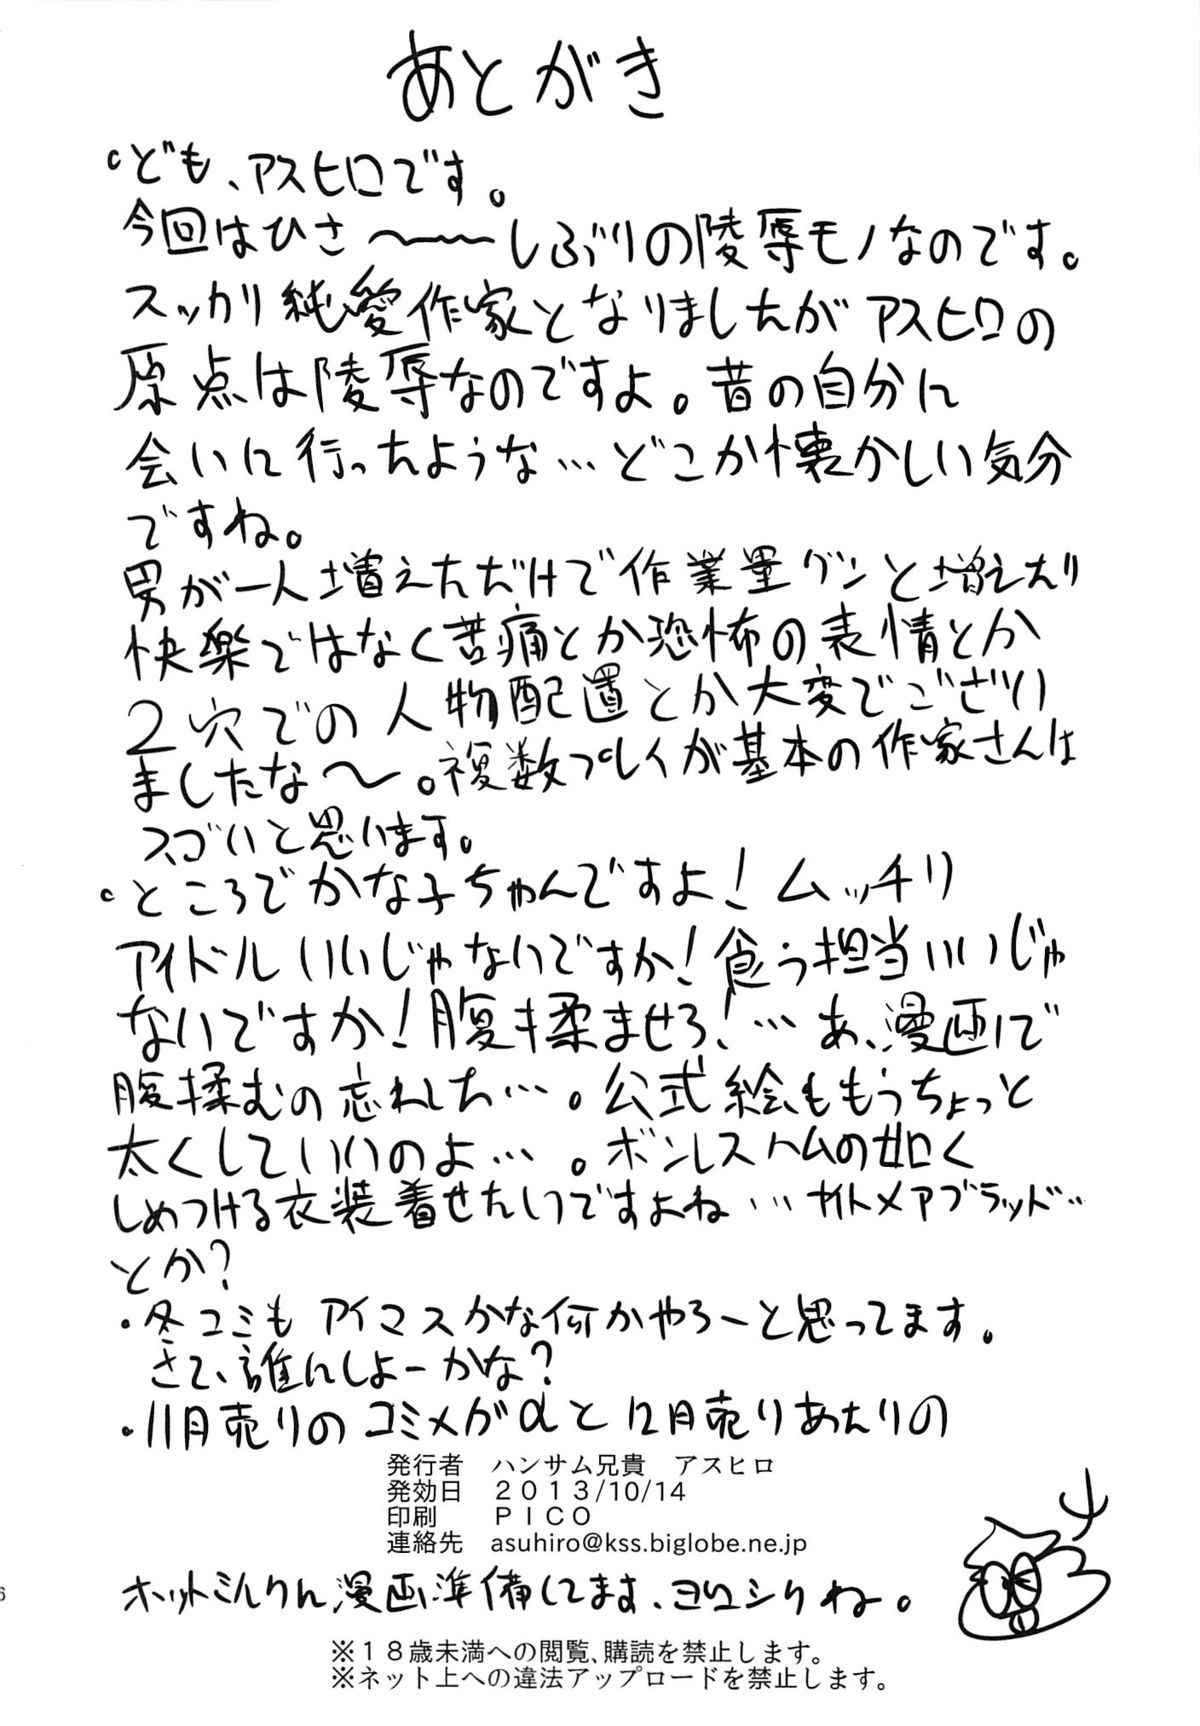 あとがき
・ども、アスヒロです。
今回はひさ〜〜〜しぶりの陵辱モノなのです。
スッカリ純愛作家となりましたがアスヒロの
原点は陵辱なのですよ。昔の自分に
会いに行ったような…どこか懐かしい気分
ですね。
男が一人増えただけで作業量グンと増えたり
快楽ではなく苦痛とか恐怖の表情とか
2穴での人物配置とか大変でござい
ましたな〜。複数プレイが基本の作家さんは
スゴいと思います。
・ところでかな子ちゃんですよ!ムッチリ
アイドルいいじゃないですか!食う担当いいじゃ
ないですか!腹を揉ませろ!…あ、漫画で
腹揉むの忘れした…。公式絵ももうちょっと
太くしていいのよ…。ボンレスハムの如く
しめつける衣装着せたいですよね…ナイトメアブラッド…
とか?
・冬コミもアイマスかな何かやろーと思ってます。
さて、誰にしよーかな?
・11月売りのコミメガαと12月売りあたりの
発行者 ハンサム兄貴 アスヒロ
発効日 2013/10/14
印刷 PICO
連絡先 asuhiro@kss.biglobe.ne.jp
ホットミルクに漫画準備してます、ヨロシクね。
※18歳未満への閲覧、購読を禁止します。
※ネット上への違法アップロードを禁止します。
6